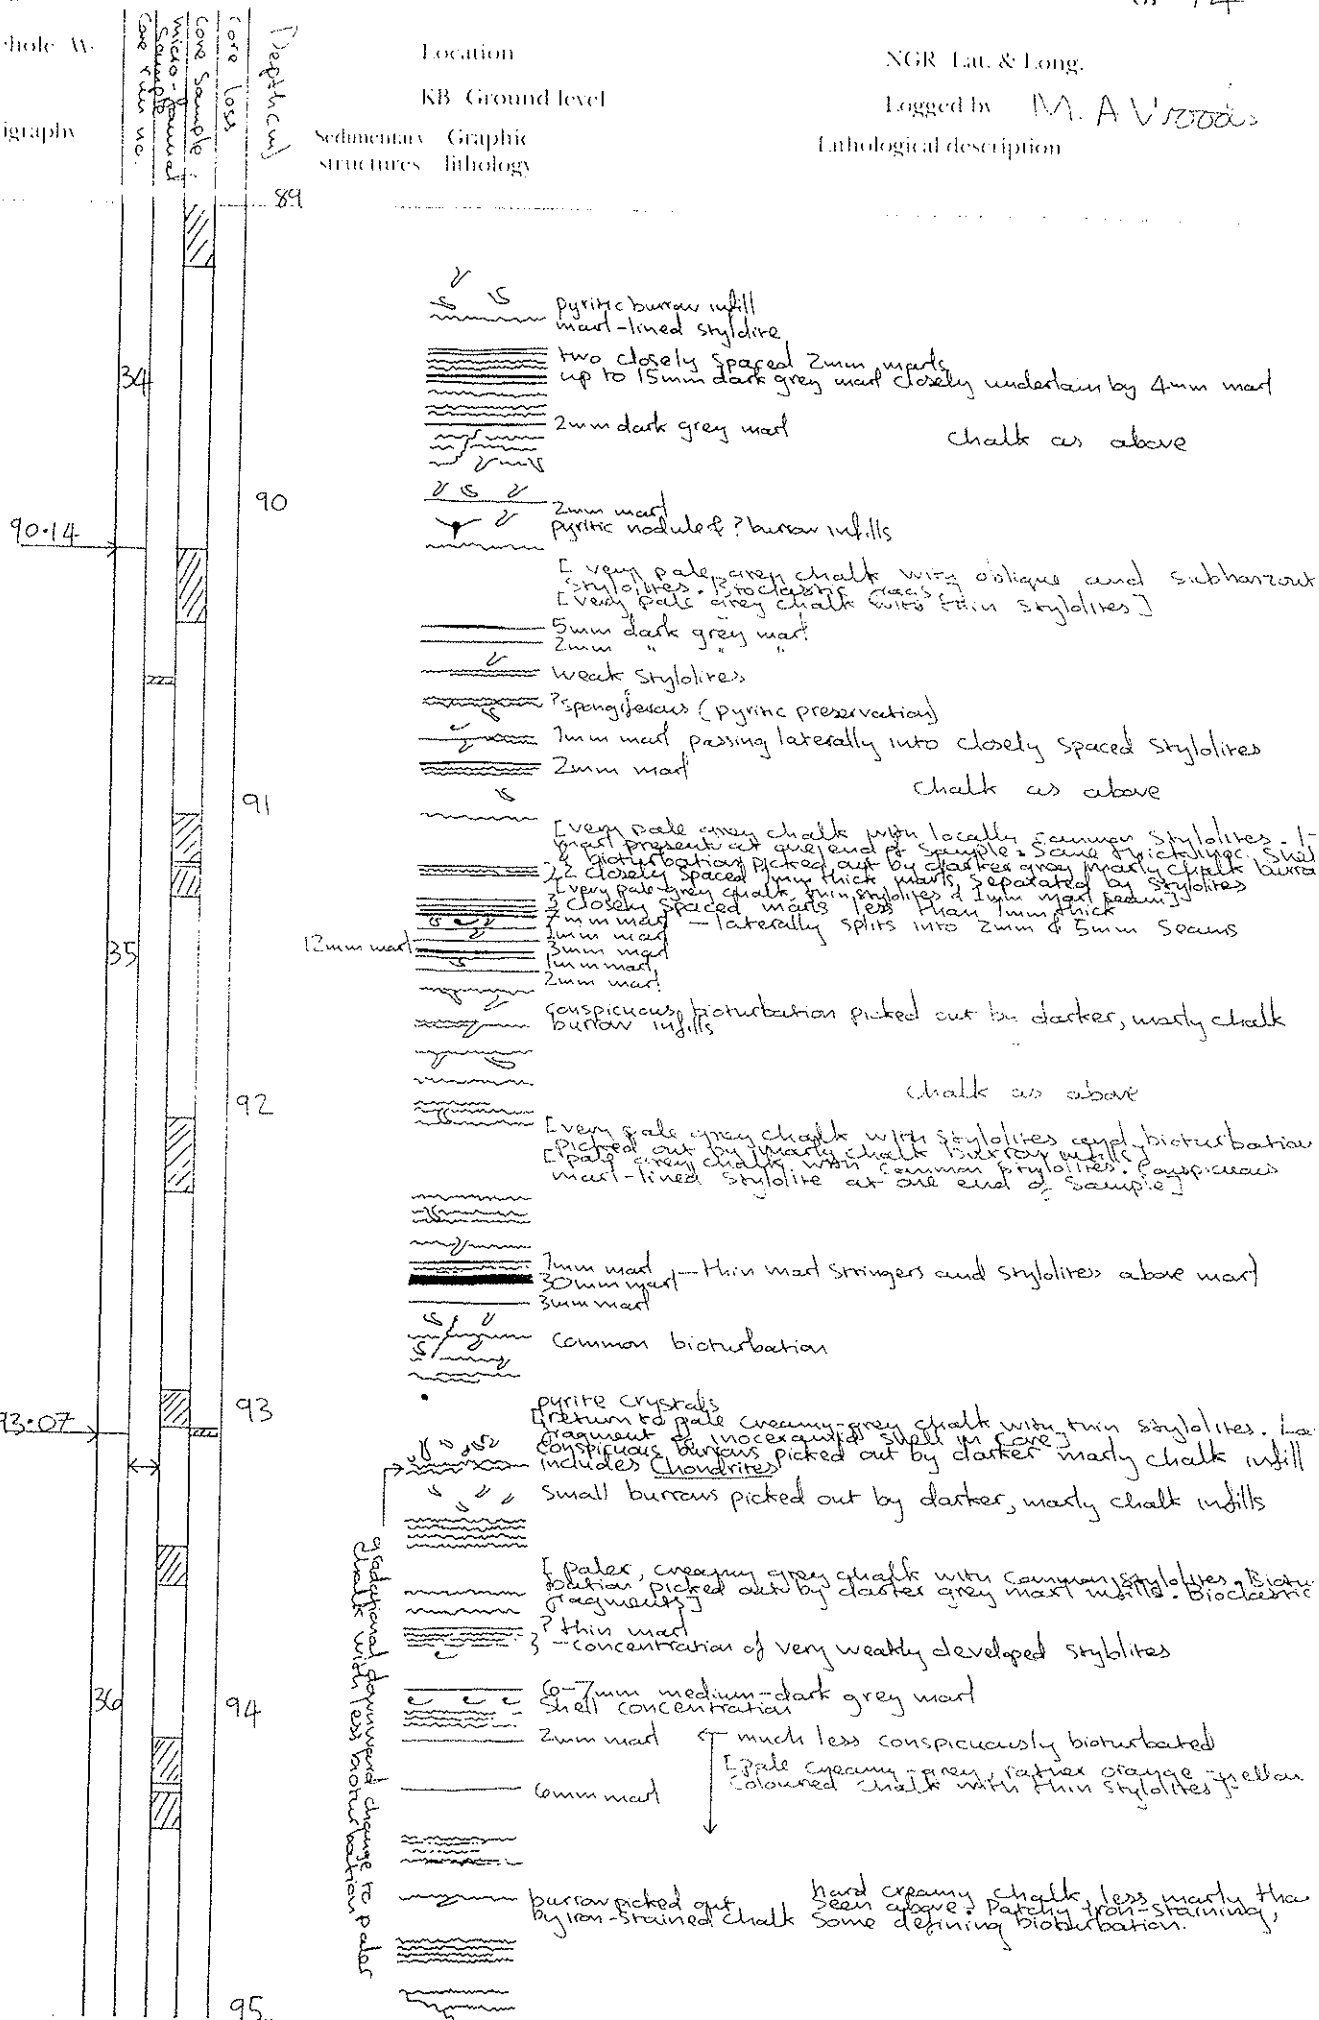 14
Location
NGR Lat. & Long.
KB Ground level
Logged by M. A Woods
igraphy
Sedimentary structures
Graphic lithology
Lithological description
Core run no.
micro-faunal sample
Core Sample
Core loss
Depth (m)
89
pyritic burrow infill
marl-lined stylolite
two closely spaced 2mm marls
up to 15mm dark grey marl closely underlain by 4mm marl
34
2mm dark grey marl
chalk as above
90
2mm marl
90.14
pyritic nodule & ? burrow infills
[very pale grey chalk with oblique and subhorizont
stylolites. Bioclastic
[very pale grey chalk with thin stylolites]
5mm dark grey marl
2mm " " "
weak stylolites
?spongiferous (pyritic preservation)
1mm marl passing laterally into closely spaced stylolites
2mm marl
chalk as above
91
[very pale grey chalk with locally common stylolites. 1-
marl present at one end of sample. Some Shel
& bioturbation picked out by darker grey marly chalk burro
2 closely spaced 1mm thick marls, separated by stylolites
[very pale grey chalk, thin stylolites & 1mm marl seam]
3 closely spaced marls less than 1mm thick
7mm marl - laterally splits into 2mm & 5mm seams
1mm marl
12mm marl
3mm marl
1mm marl
2mm marl
35
conspicuous bioturbation picked out by darker, marly chalk
burrow infills
chalk as above
92
[very pale grey chalk with stylolites and bioturbation
picked out by marly chalk burrow infills
[pale grey chalk with common stylolites. Conspicuous
marl-lined stylolite at one end of sample]
1mm marl - thin marl stringers and stylolites above marl
30mm marl
3mm marl
common bioturbation
93
pyrite crystals
93.07
[return to pale creamy-grey chalk with thin stylolites. La
fragment of inoceramid shell in core]
conspicuous burrows picked out by darker marly chalk infill
includes Chondrites
small burrows picked out by darker, marly chalk infills
gradational downward change to paler
chalk with less bioturbation
[paler, creamy grey chalk with common stylolites. Biotu
bation picked out by darker grey marl infills. Bioclastic
fragments]
? thin marl
- concentration of very weakly developed stylolites
36
94
6-7mm medium-dark grey marl
shell concentration
2mm marl
much less conspicuously bioturbated
[pale creamy-grey, rather orange-yellow
coloured chalk with thin stylolites]
6mm marl
burrow picked out
by iron-stained chalk
hard creamy chalk, less marly tha
seen above. Patchy iron-staining,
some defining bioturbation.
95